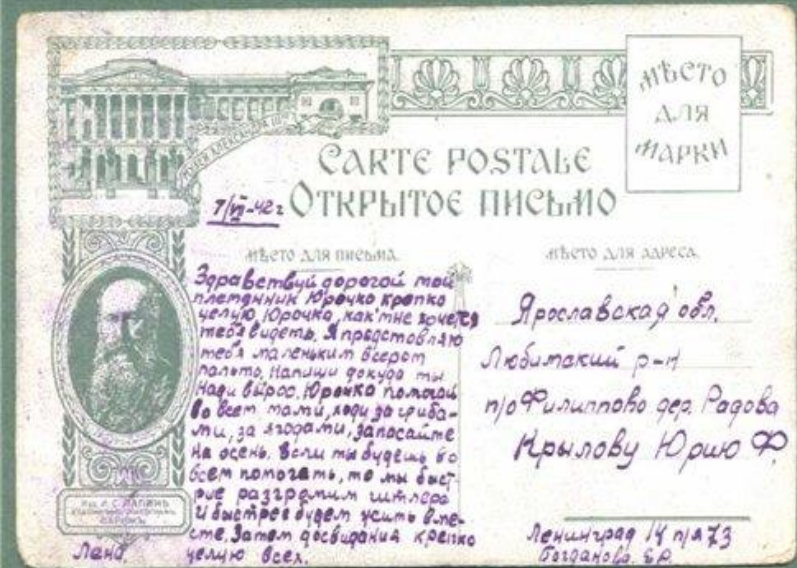 МУЗЕЙ АЛЕКСАНДРА III
МѢСТО
ДЛЯ
МАРКИ
CARTE POSTALE
ОТКРЫТОЕ ПИСЬМО
7/VII-42г
МѢСТО ДЛЯ ПИСЬМА.
Здравствуй дорогой мой
племянник Юрочка крепко
целую, Юрочка, как мне хочется
тебя видеть. Я представляю
тебя маленьким в сером
пальто. Напиши докуда ты
Надя вырос. Юрочка помогай
во всем маме, ходи за гриба-
ми, за ягодами, запасайте
на осень. Если ты будешь во
всем помогать, то мы быст-
рее разгромим гитлера
и быстрее будем жить вме-
сте. Затем досвидания крепко
целую всех.
МѢСТО ДЛЯ АДРЕСА.
Ярославская обл.
Любимский р-н
п/о Филиппово дер. Радова
Крылову Юрию Ф.
Ленинград 14 п/я 73
Богданова Е.Р.
И.С. ЛАПИНЪ
ПАРИЖЪ